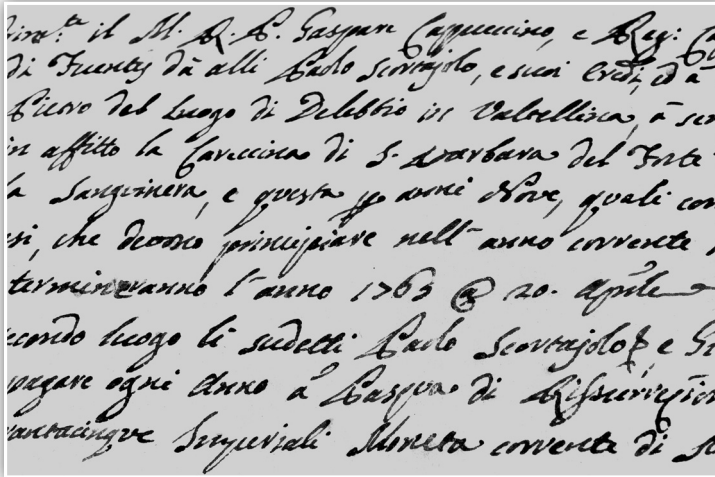 il M. R. P. Gaspare Cappuccino, e Reg:
di Fuentes dà alli Paolo Scortajolo, e suoi Eredi, ed à
Piero del Luogo di Delebbio in Valtellina, à
in affitto la Careccina di S. Barbara del Forte
la Sanguinera, e questa p anni Nove, quali
si, che devono principiare nell' anno corrente
termineranno l' anno 1763 @ 20. Aprile
econdo luogo li sudetti Paolo Scortajolo, e
pagare ogni Anno à Pasqua di
rantacinque Imperiali Moneta corrente di